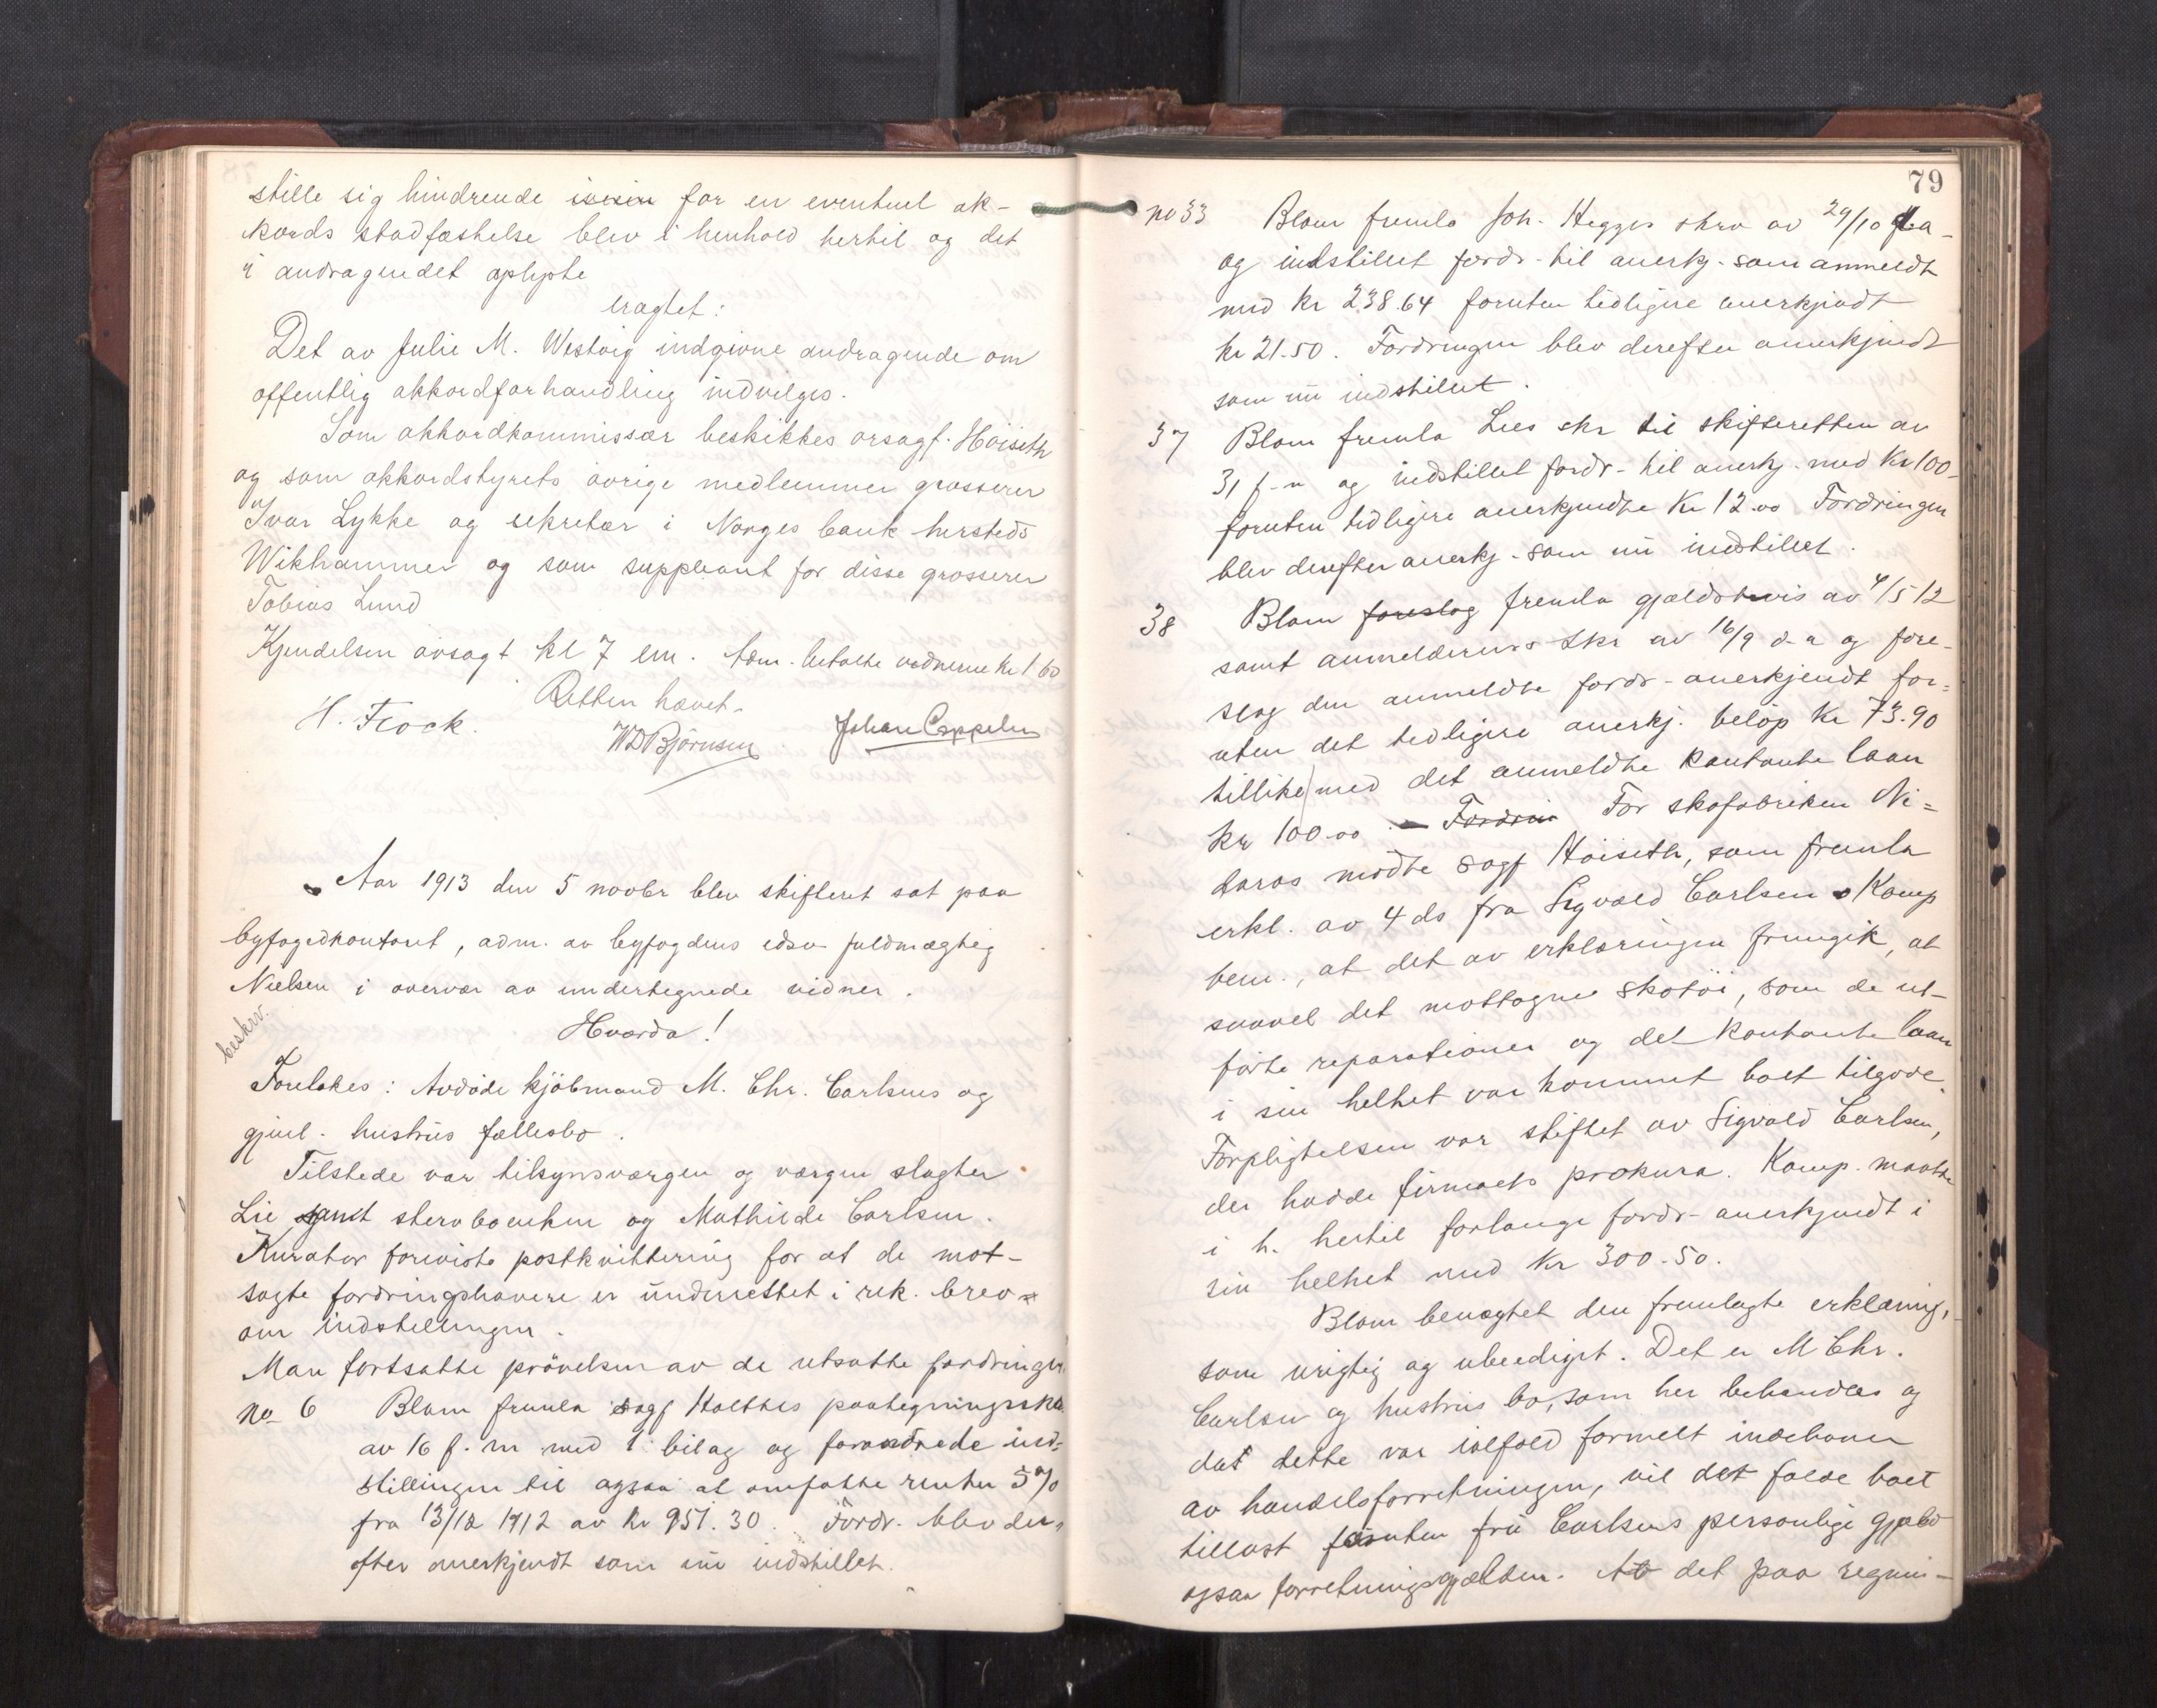 stille sig hindrende iveien for en eventuel ak-
kords stadfæstelse blev i henhold hertil og det
i andragendet oplyste
eragtet:
Det av Julie M. Westvig indgivne andragende om
offentlig akkordforhandling indvilges.
Som akkordkommissær beskikkes orsagf. Höiseth
og som akkordstyrets øvrige medlemmer grosserer
Ivar Lykke og sekretær i Norges bank hersteds
Wikhammer og som suppleant for disse grosserer
Tobias Lund
Kjendelsen avsagt kl 7 em. Adm. betalte vidnerne kr 1.60
Retten hævet.
H. Frock. WDBjörnsen Johan Cappelen
Aar 1913 den 5 novbr blev skifteret sat paa
byfogedkontoret, adm. av byfogdens edsv fuldmægtig
Nielsen i overvær av undertegnede vidner.
beskrv.
Hvorda!
Foretokes: Avdöde kjöbmand M. Chr. Carlsens og
gjenl. hustrus fællesbo.
Tilstede var tilsynsværgen og værgen slagter
Lie samt stervboenken og Mathilde Carlsen.
Kurator foreviste postkvittering for at de mot-
sagte fordringshavere er underrettet i rek. brev
om indstillingen.
Man fortsatte prövelsen av de utsatte fordringer
no 6 Blom fremla sagf Holthes paategningsskr.
av 16 f. m med 1 bilag og forandrede ind-
stillingen til ogsaa at omfatte renter 5%
fra 13/12 1912 av kr 951.30. Fordr. blev der-
efter anerkjendt som nu indstillet.
79
no 33 Blom fremla Joh. Hegges skrv av 29/10 d.a.
og indstillet fordr. til anerkj. som anmeldt
med kr 238.64 foruten tidligere anerkjendt
kr 21.50. Fordringen blev derefter anerkjendt
som nu indstillet.
37 Blom fremla Lies skr til skifteretten av
31 f.m og indstillet fordr. til anerkj. med kr 100-
foruten tidligere anerkjendte kr 12.00 Fordringen
blev derefter anerkj. som nu indstillet.
38 Blom foreslog fremla gjældsbevis av 4/5 12
samt anmelderens skr av 16/9 d.a og fore-
slog den anmeldte fordr. anerkjendt for-
uten det tidligere anerkj. belöp kr 73.90
tillike med det anmeldte kontante laan
kr 100.00 Fordrin For skofabriken Ni-
daros mödte sagf Höiseth, som fremla
erkl. av 4 ds fra Sigvald Carlsen Komp
bem., at det av erklæringen fremgik, at
saavel det mottagne skotöi, som de ut-
förte reparationer og det kontante laan
i sin helhet var kommet boet tilgode.
Forpligtelsen var stiftet av Sigvald Carlsen,
der hadde firmaets prokura. Komp. maatte
i h. hertil forlange fordr. anerkjendt i
sin helhet med kr 300.50.
Blom benægtet den fremlagte erklæring,
som urigtig og ubeediget. Det er M Chr.
Carlsen og hustrus bo, som her behandles og
dat dette var ialfald formelt indehaver
av handelsforretningen, vil det falde boet
tillast foruten fru Carlsens personlige gjæld
ogsaa forretningsgjælden. At det paa regnin-